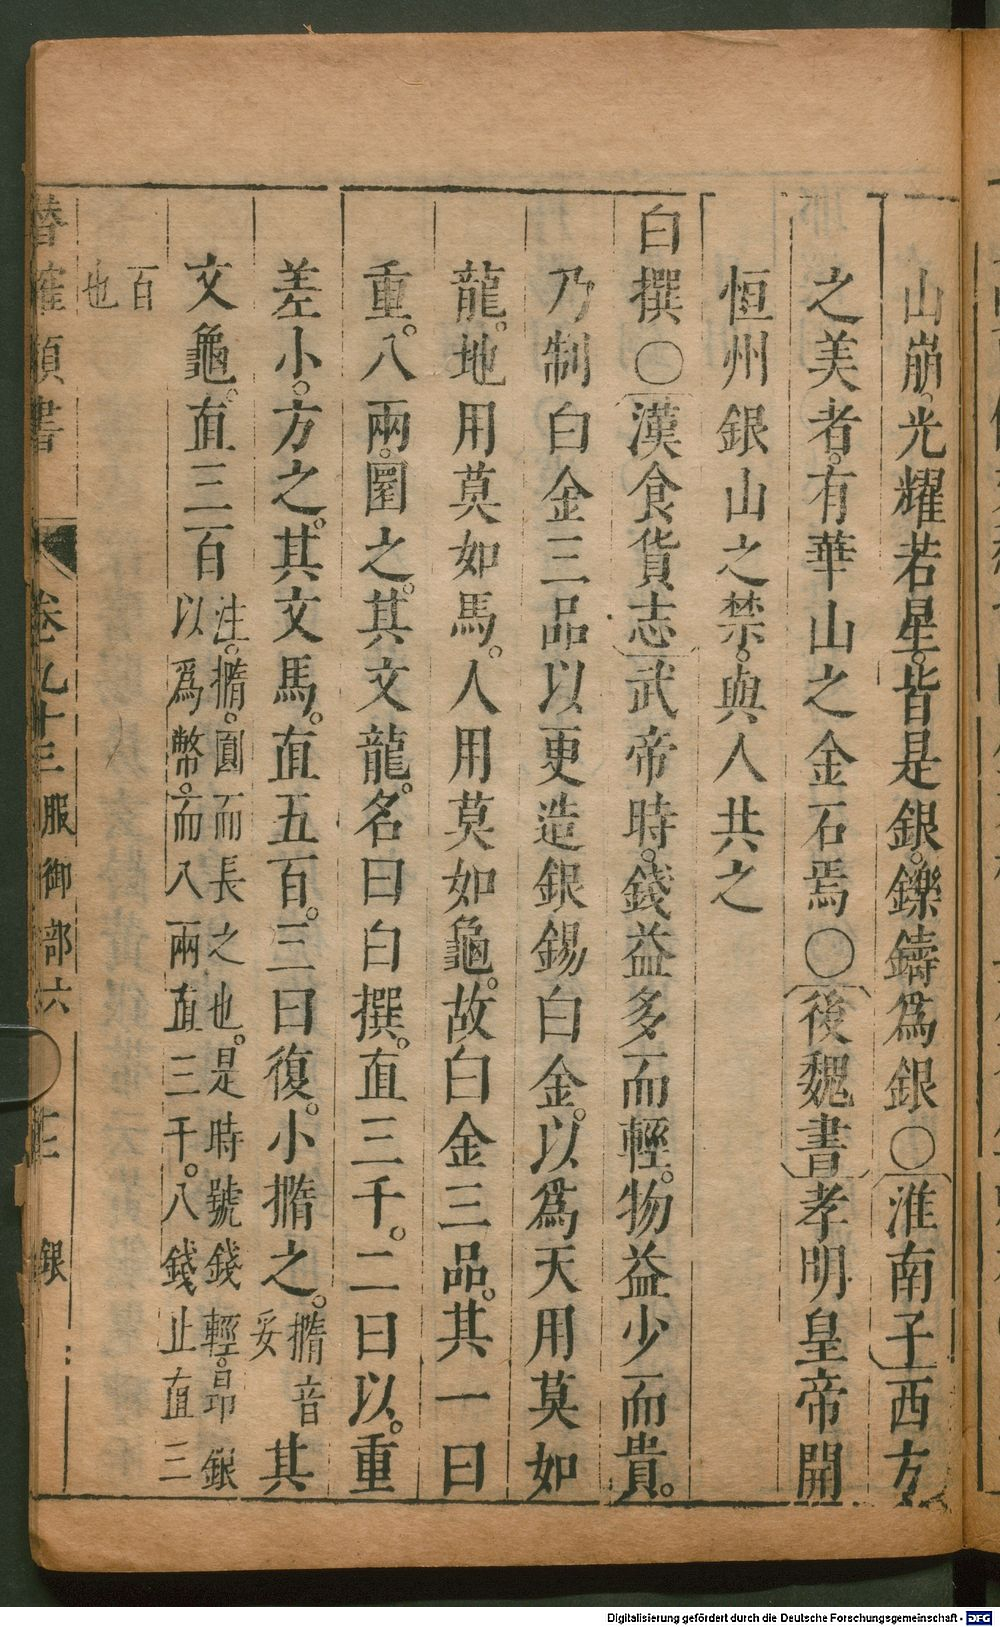 山崩。光耀若星。皆是銀。鑠鑄爲銀〇淮南子西方
之美者。有華山之金石焉〇後魏書孝明皇帝開
恒州銀山之禁。與人共之
白撰〇漢食貨志武帝時。錢益多而輕。物益少而貴。
乃制白金三品以更造銀錫白金。以爲天用莫如
龍。地用莫如馬。人用莫如龜。故白金三品。其一曰
重。八兩。圜之。其文龍。名曰白撰。直三千。二曰以。重
差小。方之。其文馬。直五百。三曰復。小撱之。撱音妥其
文龜。直三百注。撱。圓而長之也。是時號錢輕。昂銀
以爲幣。而八兩直三千。八錢止直二
百
也
潛確類書 卷九十三 服御部六 銀
Digitalisierung gefördert durch die Deutsche Forschungsgemeinschaft - DFG